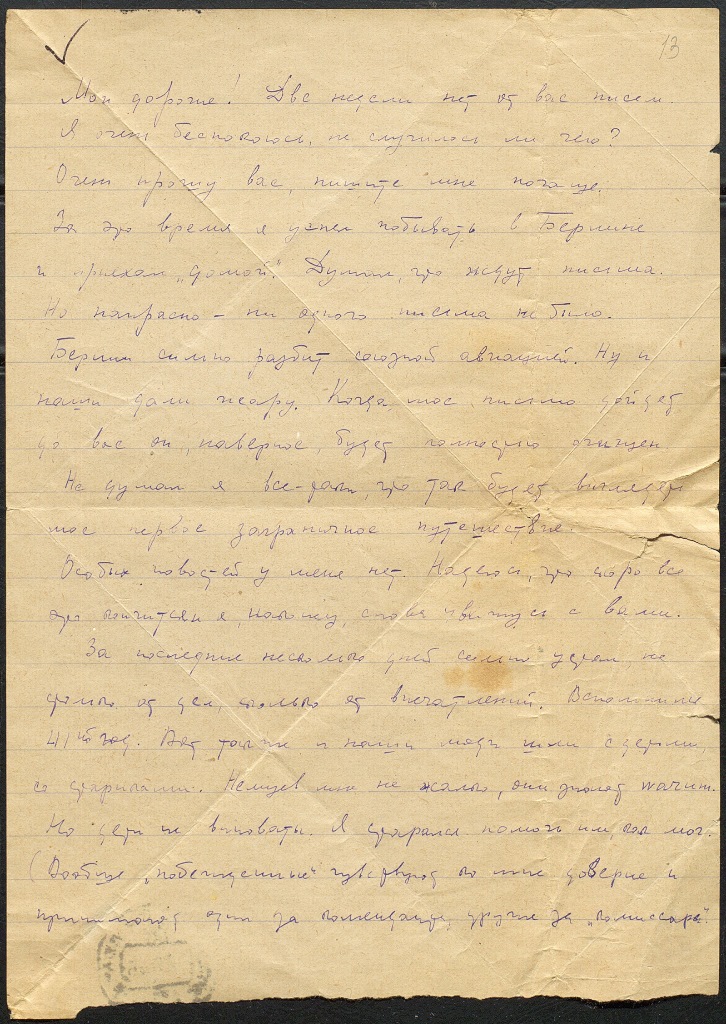 13
Мои дорогие! Две недели нет от вас писем.
Я очень беспокоюсь, не случилось ли чего?
Очень прошу вас, пишите мне почаще.
За это время я успел побывать в Берлине
и приехал „домой“. Думал, что ждут письма.
Но напрасно – ни одного письма не было.
Берлин сильно разбит союзной авиацией. Ну и
наши дали жару. Когда мое письмо дойдет
до вас он, наверное, будет полностью очищен.
Не думал я все-таки, что так будет выглядеть
мое первое заграничное путешествие.
Особых новостей у меня нет. Надеюсь, что скоро все
это кончится и я, наконец, снова увижусь с вами.
За последние несколько дней сильно устал, не
столько от дел, сколько от впечатлений. Вспомнился
41ый год. Вот так же и наши люди шли с детьми,
со стариками. Немцев мне не жалко, они знают
Но дети не виноваты. Я старался помочь им, как мог.
(Вообще „побежденные“ чувствуют ко мне доверие и
принимают одни за коменданта, другие за „комиссара“.